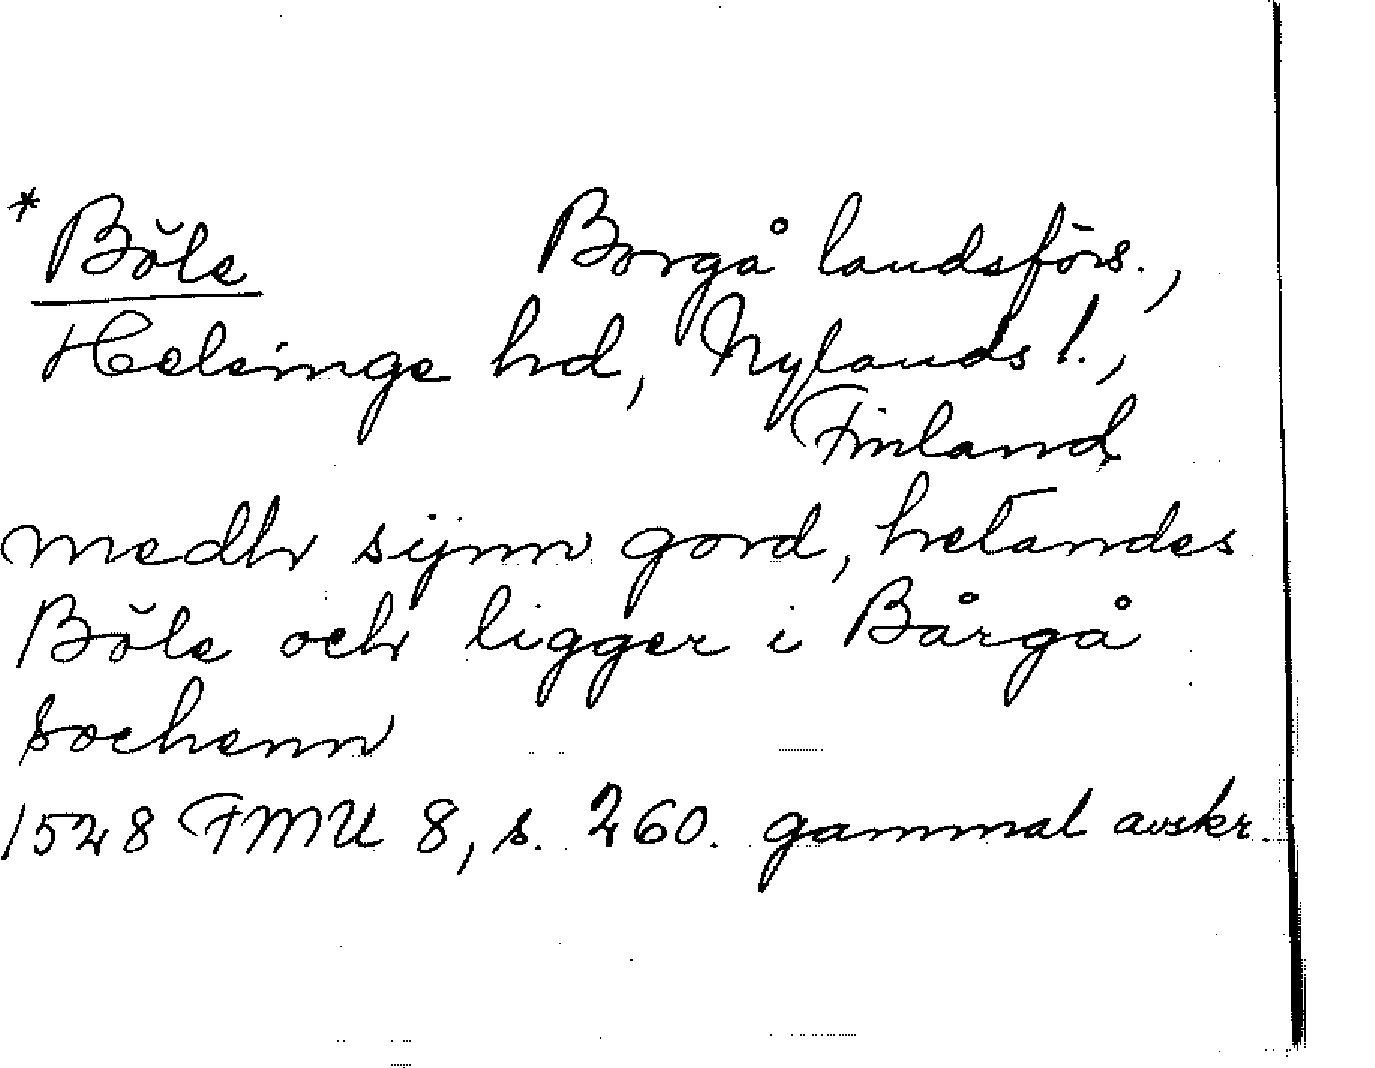 * Böle Borgå landsförs.,
Helsinge hd, Nylands l.,
Finland
medh sijnn gord, hetandes
Böle och ligger i Bårgå
sochenn
1528 FMU 8, s. 260. gammal avskr.